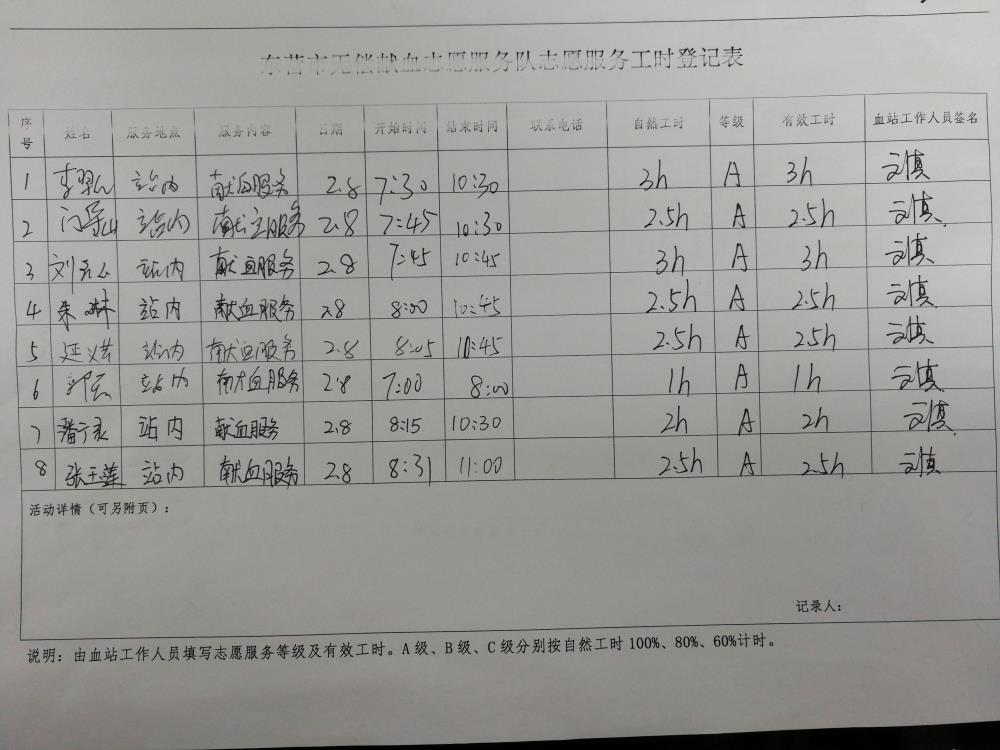 东营市无偿献血志愿服务队志愿服务工时登记表
序号 姓名 服务地点 服务内容 日期 开始时间 结束时间 联系电话 自然工时 等级 有效工时 血站工作人员签名
1 站内 献血服务 2.8 7:30 10:30 3h A 3h
2 站内 献血服务 2.8 7:45 10:30 2.5h A 2.5h
3 站内 献血服务 2.8 7:45 10:45 3h A 3h
4 朱琳 站内 献血服务 2.8 8:00 10:45 2.5h A 2.5h
5 站内 献血服务 2.8 8:05 10:45 2.5h A 2.5h
6 站内 献血服务 2.8 7:00 8:00 1h A 1h
7 站内 献血服务 2.8 8:15 10:30 2h A 2h
8 张玉莲 站内 献血服务 2.8 8:31 11:00 2.5h A 2.5h
活动详情（可另附页）：
记录人：
说明：由血站工作人员填写志愿服务等级及有效工时。A级、B级、C级分别按自然工时100%、80%、60%计时。